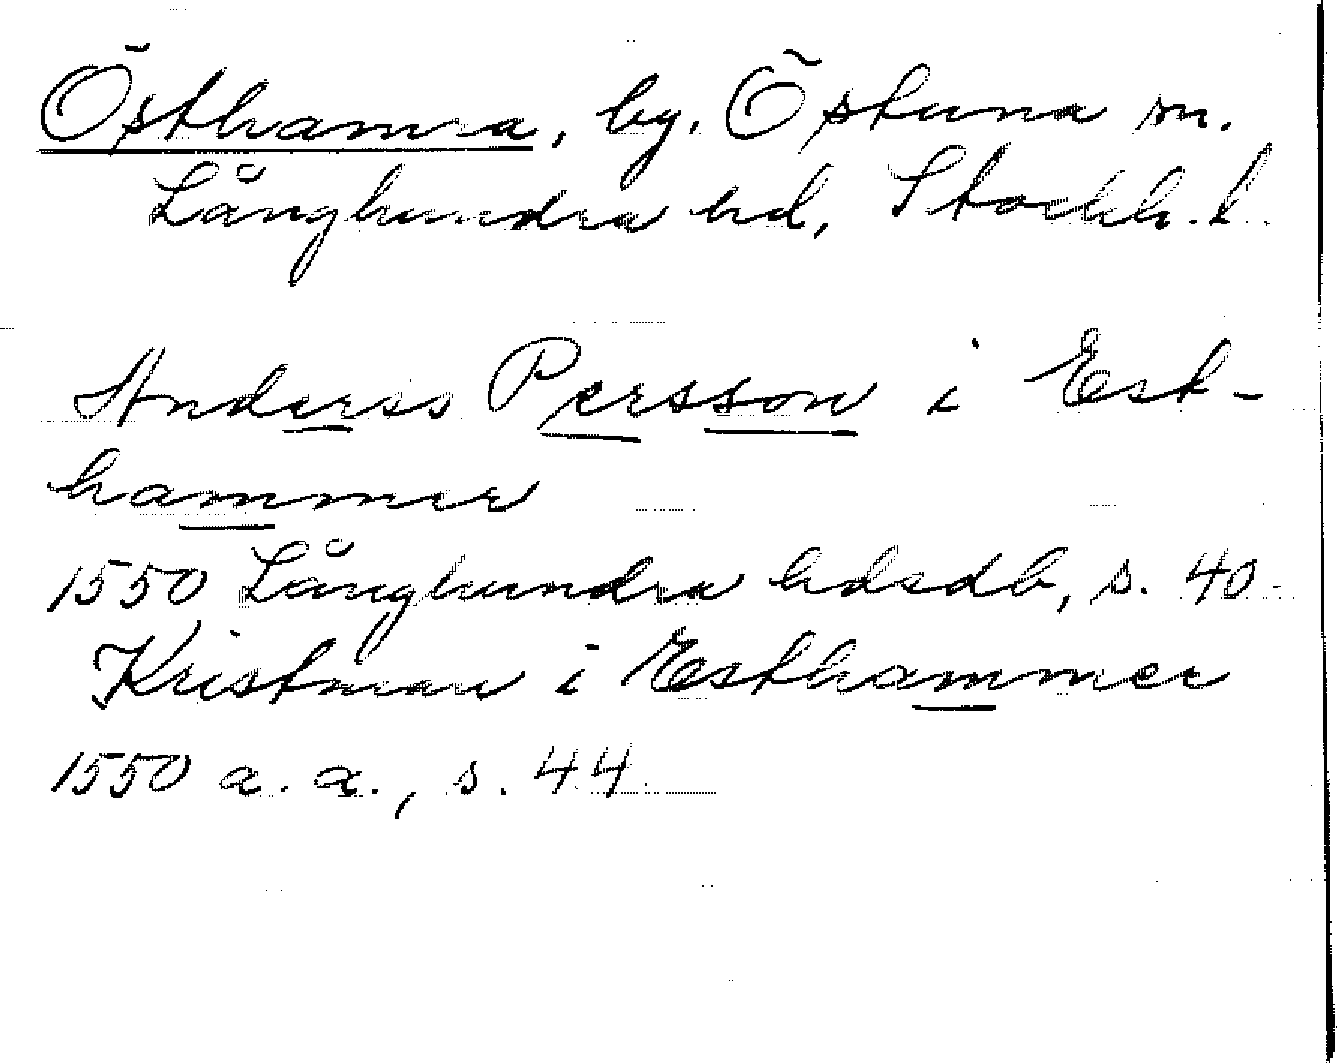 Östhamra, by. Östuna sn.
Långhundra hd, Stockh. l.
Anders Persson i Est-
hammer
1550 Långhundra hdsdb, s. 40.
Kristman i Esthammer
1550 a. a., s. 44.